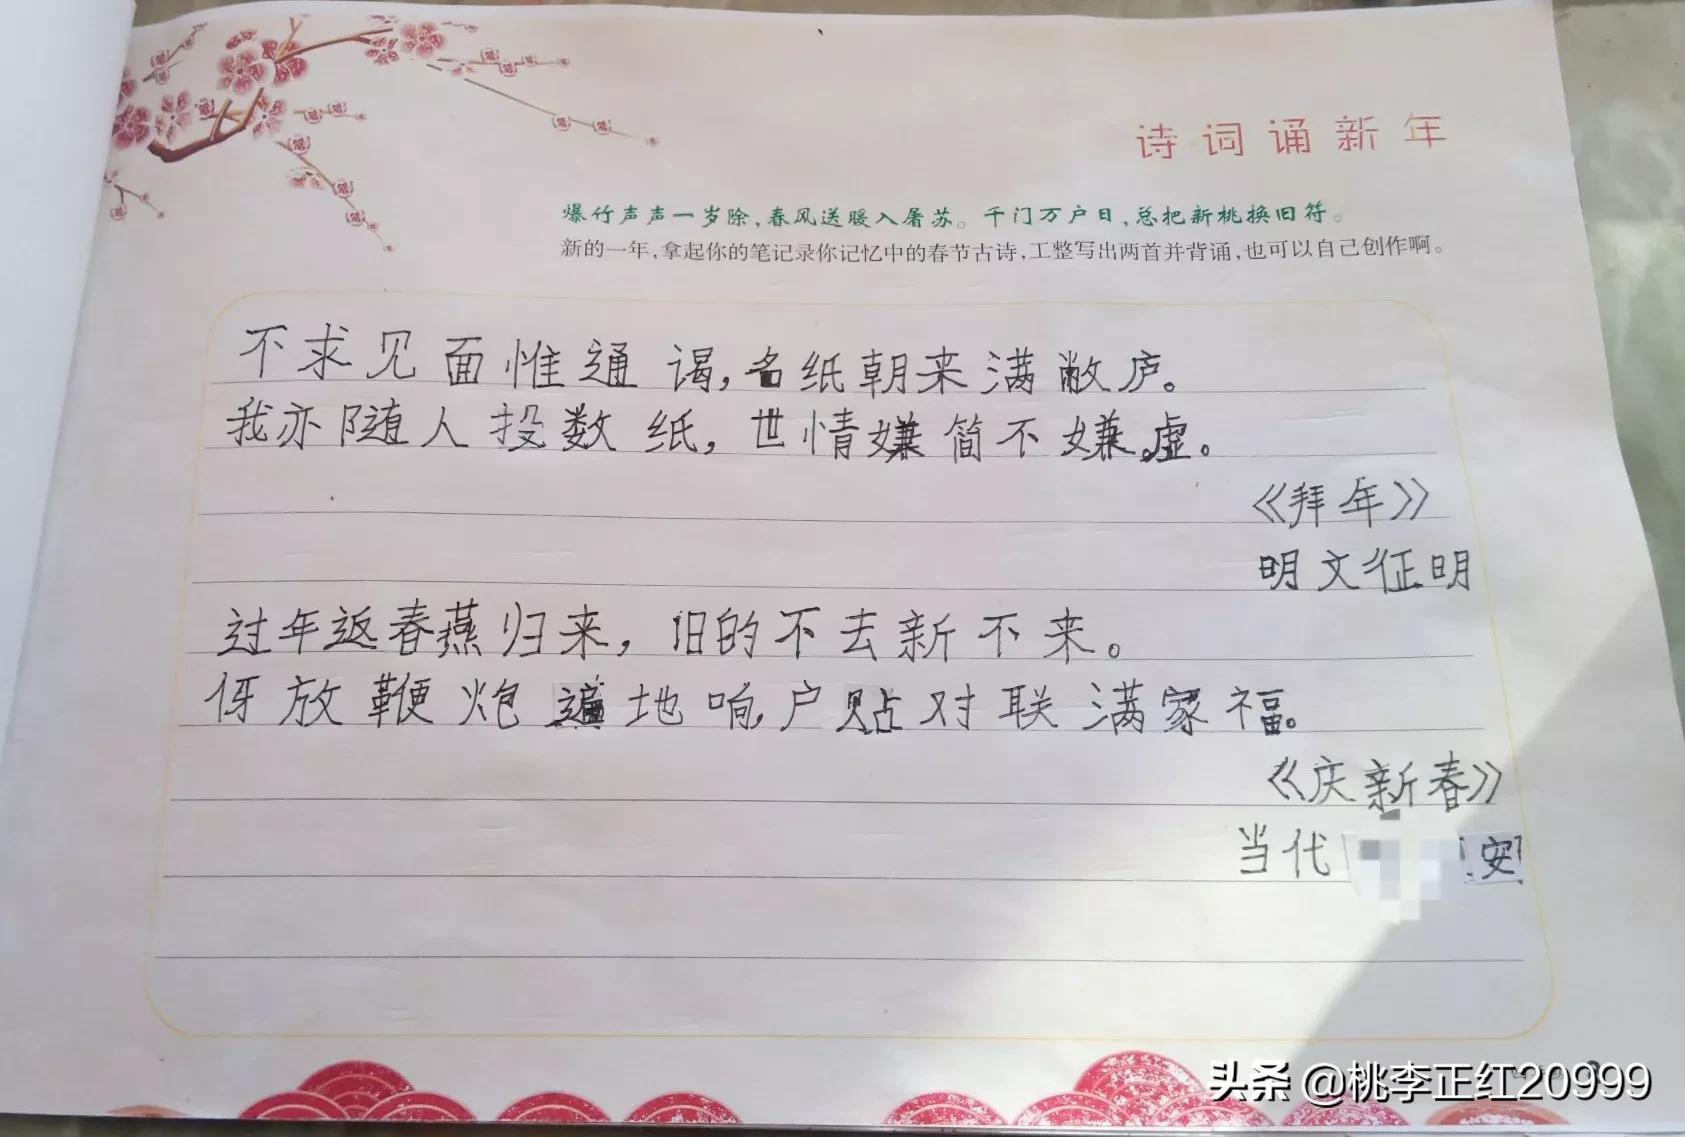 诗词诵新年
爆竹声声一岁除，春风送暖入屠苏。千门万户日，总把新桃换旧符。
新的一年，拿起你的笔记录你记忆中的春节古诗，工整写出两首并背诵，也可以自己创作啊。
不求见面惟通谒，名纸朝来满敝庐。
我亦随人投数纸，世情嫌简不嫌虚。
《拜年》
明文征明
过年返春燕归来，旧的不去新不来。
伢放鞭炮遍地响，户贴对联满家福。
《庆新春》
当代
安
头条 @桃李正红20999